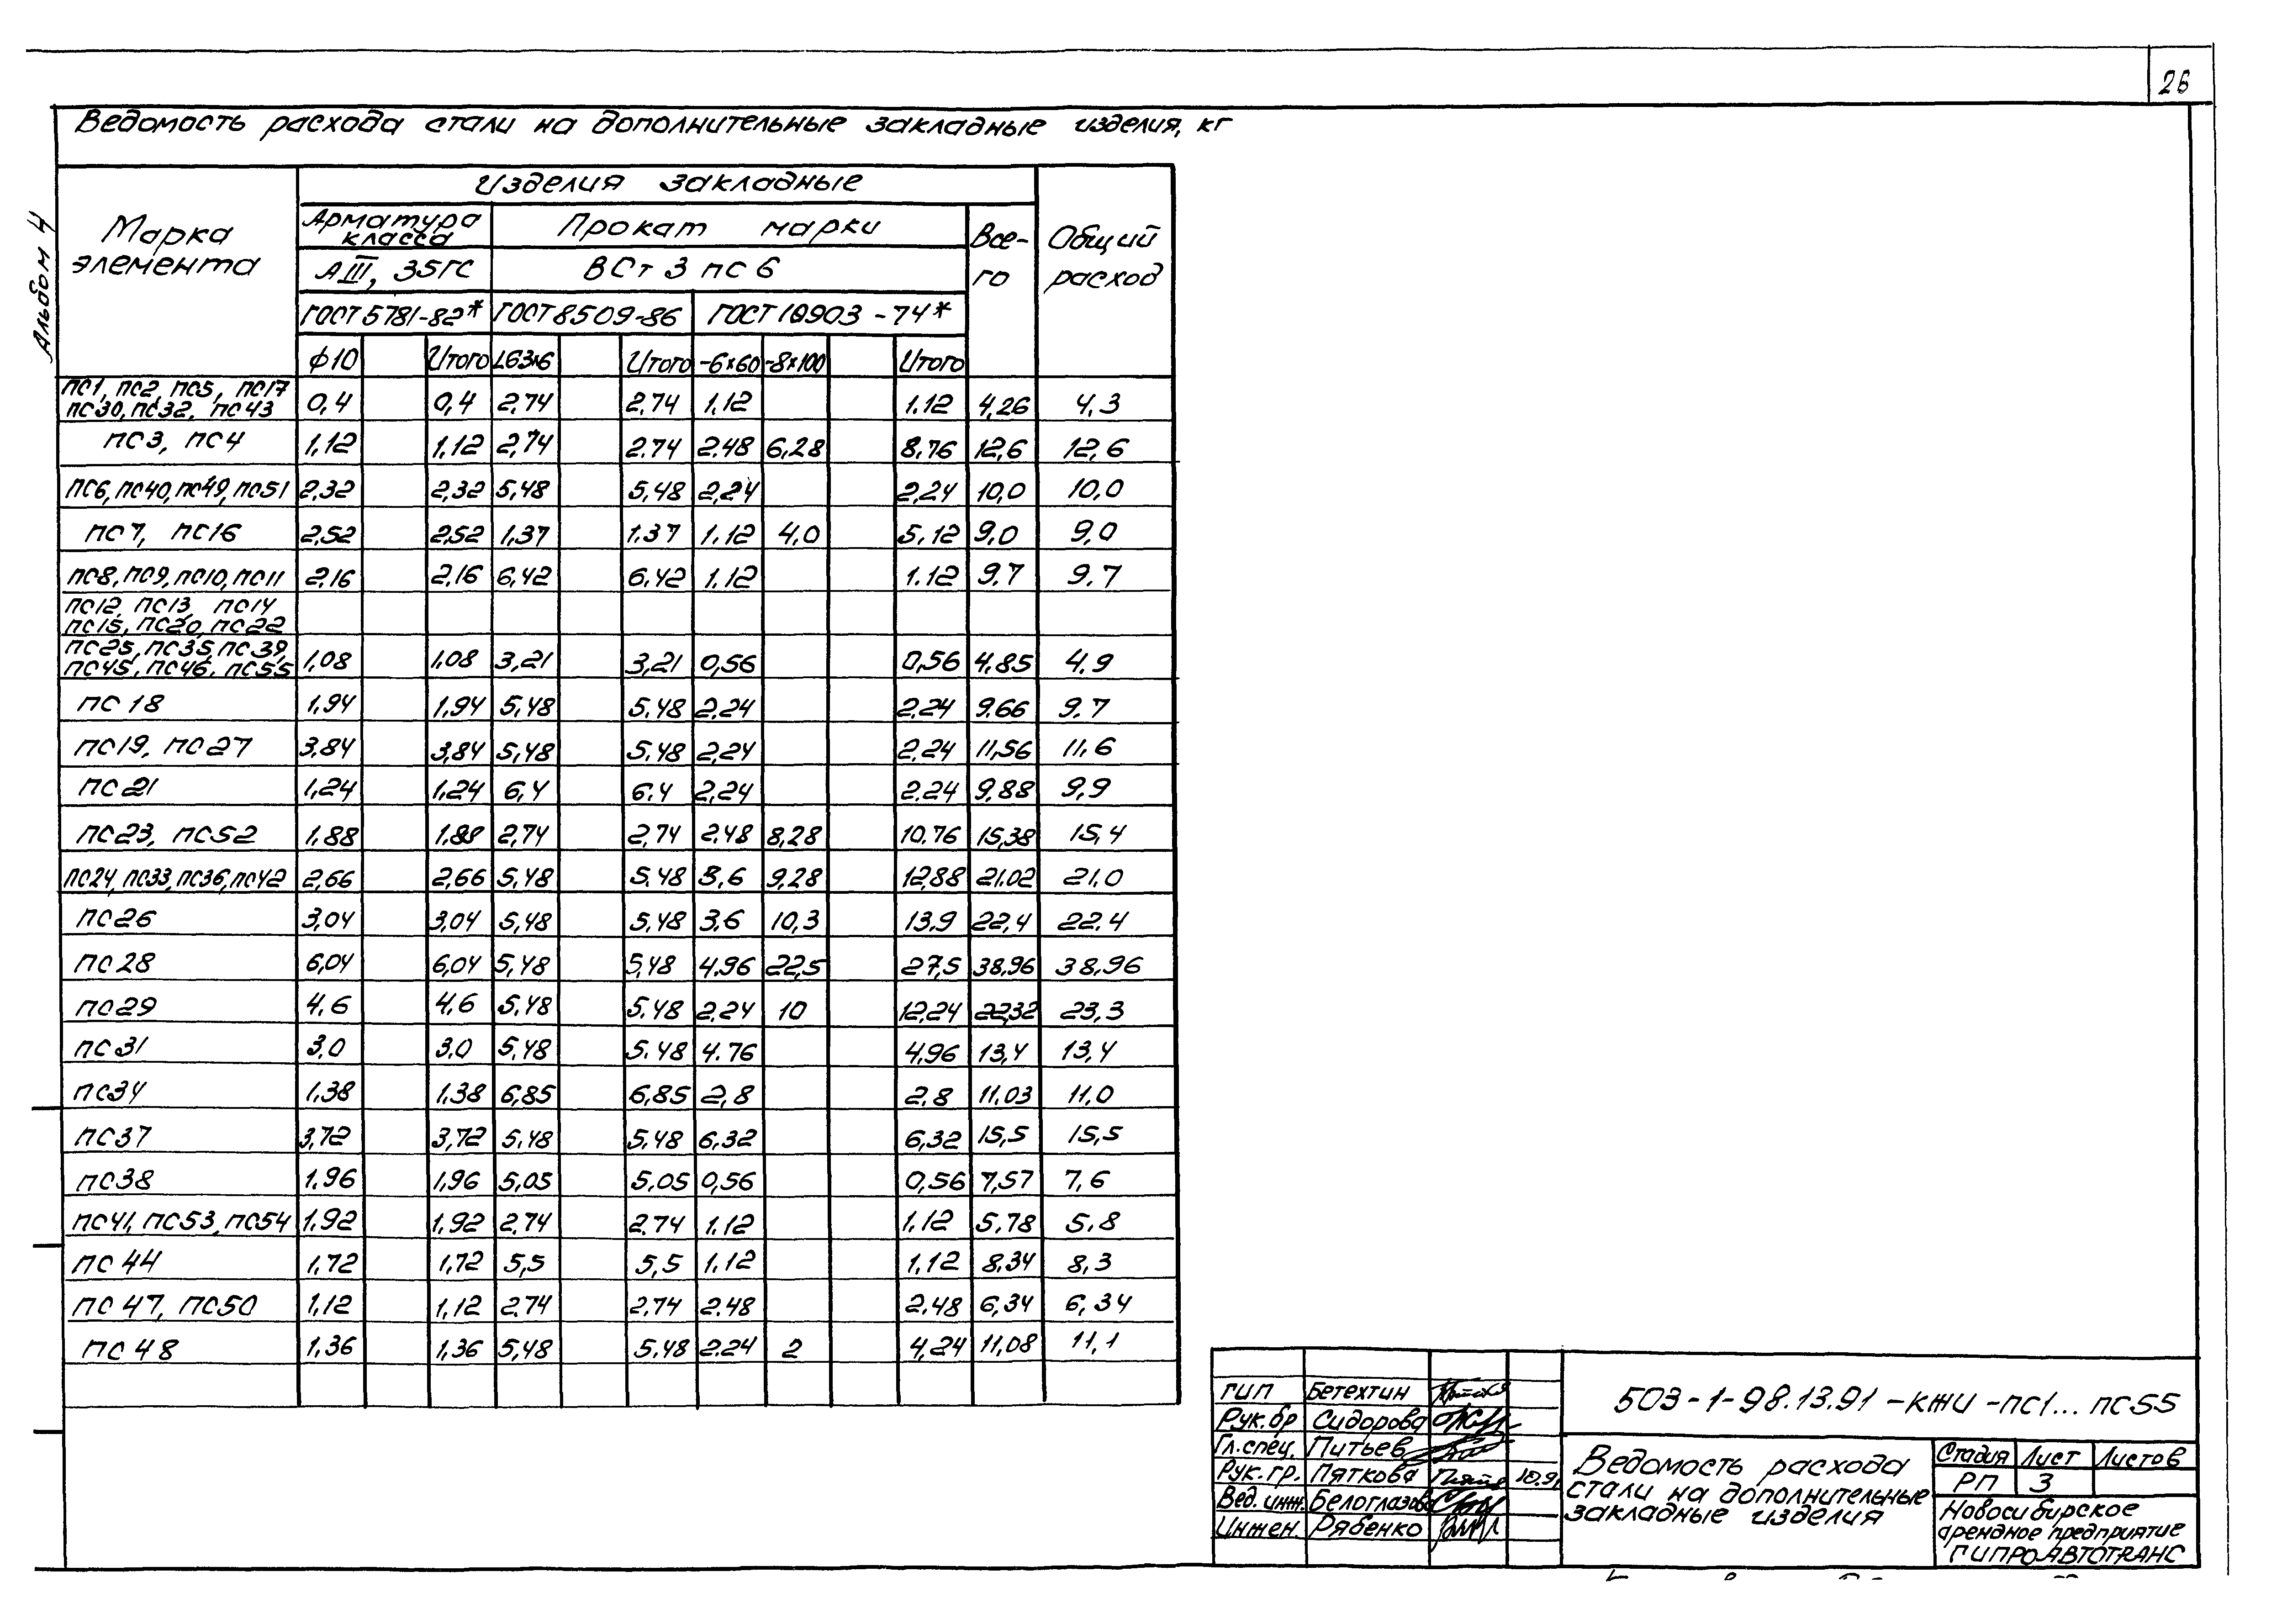 26
Альбом 4
Ведомость расхода стали на дополнительные закладные изделия, кг
Марка элемента
Изделия закладные
Общий расход
Арматура класса
Прокат марки
Все-го
АIII, 35ГС
ВСт 3 пс 6
ГОСТ 5781-82* ГОСТ 8509-86 ГОСТ 10903-74*
ϕ10 Итого L63×6 Итого -6×60 -8×100 Итого
ПС1, ПС2, ПС5, ПС17
ПС30, ПС32, ПС43 0,4 0,4 2,74 2,74 1,12 1.12 4,26 4,3
ПС3, ПС4 1,12 1,12 2,74 2.74 2.48 6,28 8,76 12,6 12,6
ПС6, ПС40, ПС49, ПС51 2,32 2,32 5,48 5,48 2,24 2,24 10,0 10,0
ПС7, ПС16 2,52 2,52 1,37 1.37 1.12 4,0 5,12 9,0 9,0
ПС8, ПС9, ПС10, ПС11 2,16 2,16 6,42 6,42 1,12 1.12 9,7 9,7
ПС12, ПС13, ПС14
ПС15, ПС20, ПС22
ПС25, ПС35, ПС39,
ПС45, ПС46, ПС55 1,08 1,08 3,21 3,21 0,56 0,56 4,85 4,9
ПС18 1,94 1,94 5,48 5,48 2,24 2,24 9,66 9,7
ПС19, ПС27 3,84 3,84 5,48 5,48 2,24 2,24 11,56 11,6
ПС21 1,24 1,24 6,4 6,4 2,24 2.24 9,88 9,9
ПС23, ПС52 1,88 1,88 2,74 2,74 2,48 8,28 10,76 15,38 15,4
ПС24, ПС33, ПС36, ПС42 2,66 2,66 5,48 5,48 3,6 9,28 12,88 21,02 21,0
ПС26 3,04 3,04 5,48 5,48 3,6 10,3 13,9 22,4 22,4
ПС28 6,04 6,04 5,48 5,48 4,96 22,5 27,5 38,96 38,96
ПС29 4,6 4,6 5,48 5,48 2,24 10 12,24 22,32 23,3
ПС31 3,0 3,0 5,48 5.48 4.76 4,96 13,4 13,4
ПС34 1,38 1,38 6,85 6,85 2,8 2,8 11,03 11,0
ПС37 3,72 3,72 5,48 5,48 6,32 6,32 15,5 15,5
ПС38 1.96 1,96 5,05 5,05 0,56 0,56 7,57 7,6
ПС41, ПС53, ПС54 1,92 1,92 2.74 2.74 1.12 1,12 5,78 5,8
ПС44 1,72 1,72 5,5 5,5 1.12 1,12 8,34 8,3
ПС47, ПС50 1,12 1,12 2.74 2,74 2.48 2,48 6,34 6,34
ПС48 1,36 1,36 5,48 5.48 2.24 2 4,24 11,08 11,1
ГИП Бетехтин
Рук.бр Сидорова
Гл.спец. Питьев
Рук.гр. Пяткова 10.91
Вед.инж. Белоглазова
Инжен. Рябенко
503-1-98.13.91-КЖИ-ПС1...ПС55
Ведомость расхода
стали на дополнительные
закладные изделия
Стадия Лист Листов
РП 3
Новосибирское
арендное предприятие
ГИПРОАВТОТРАНС